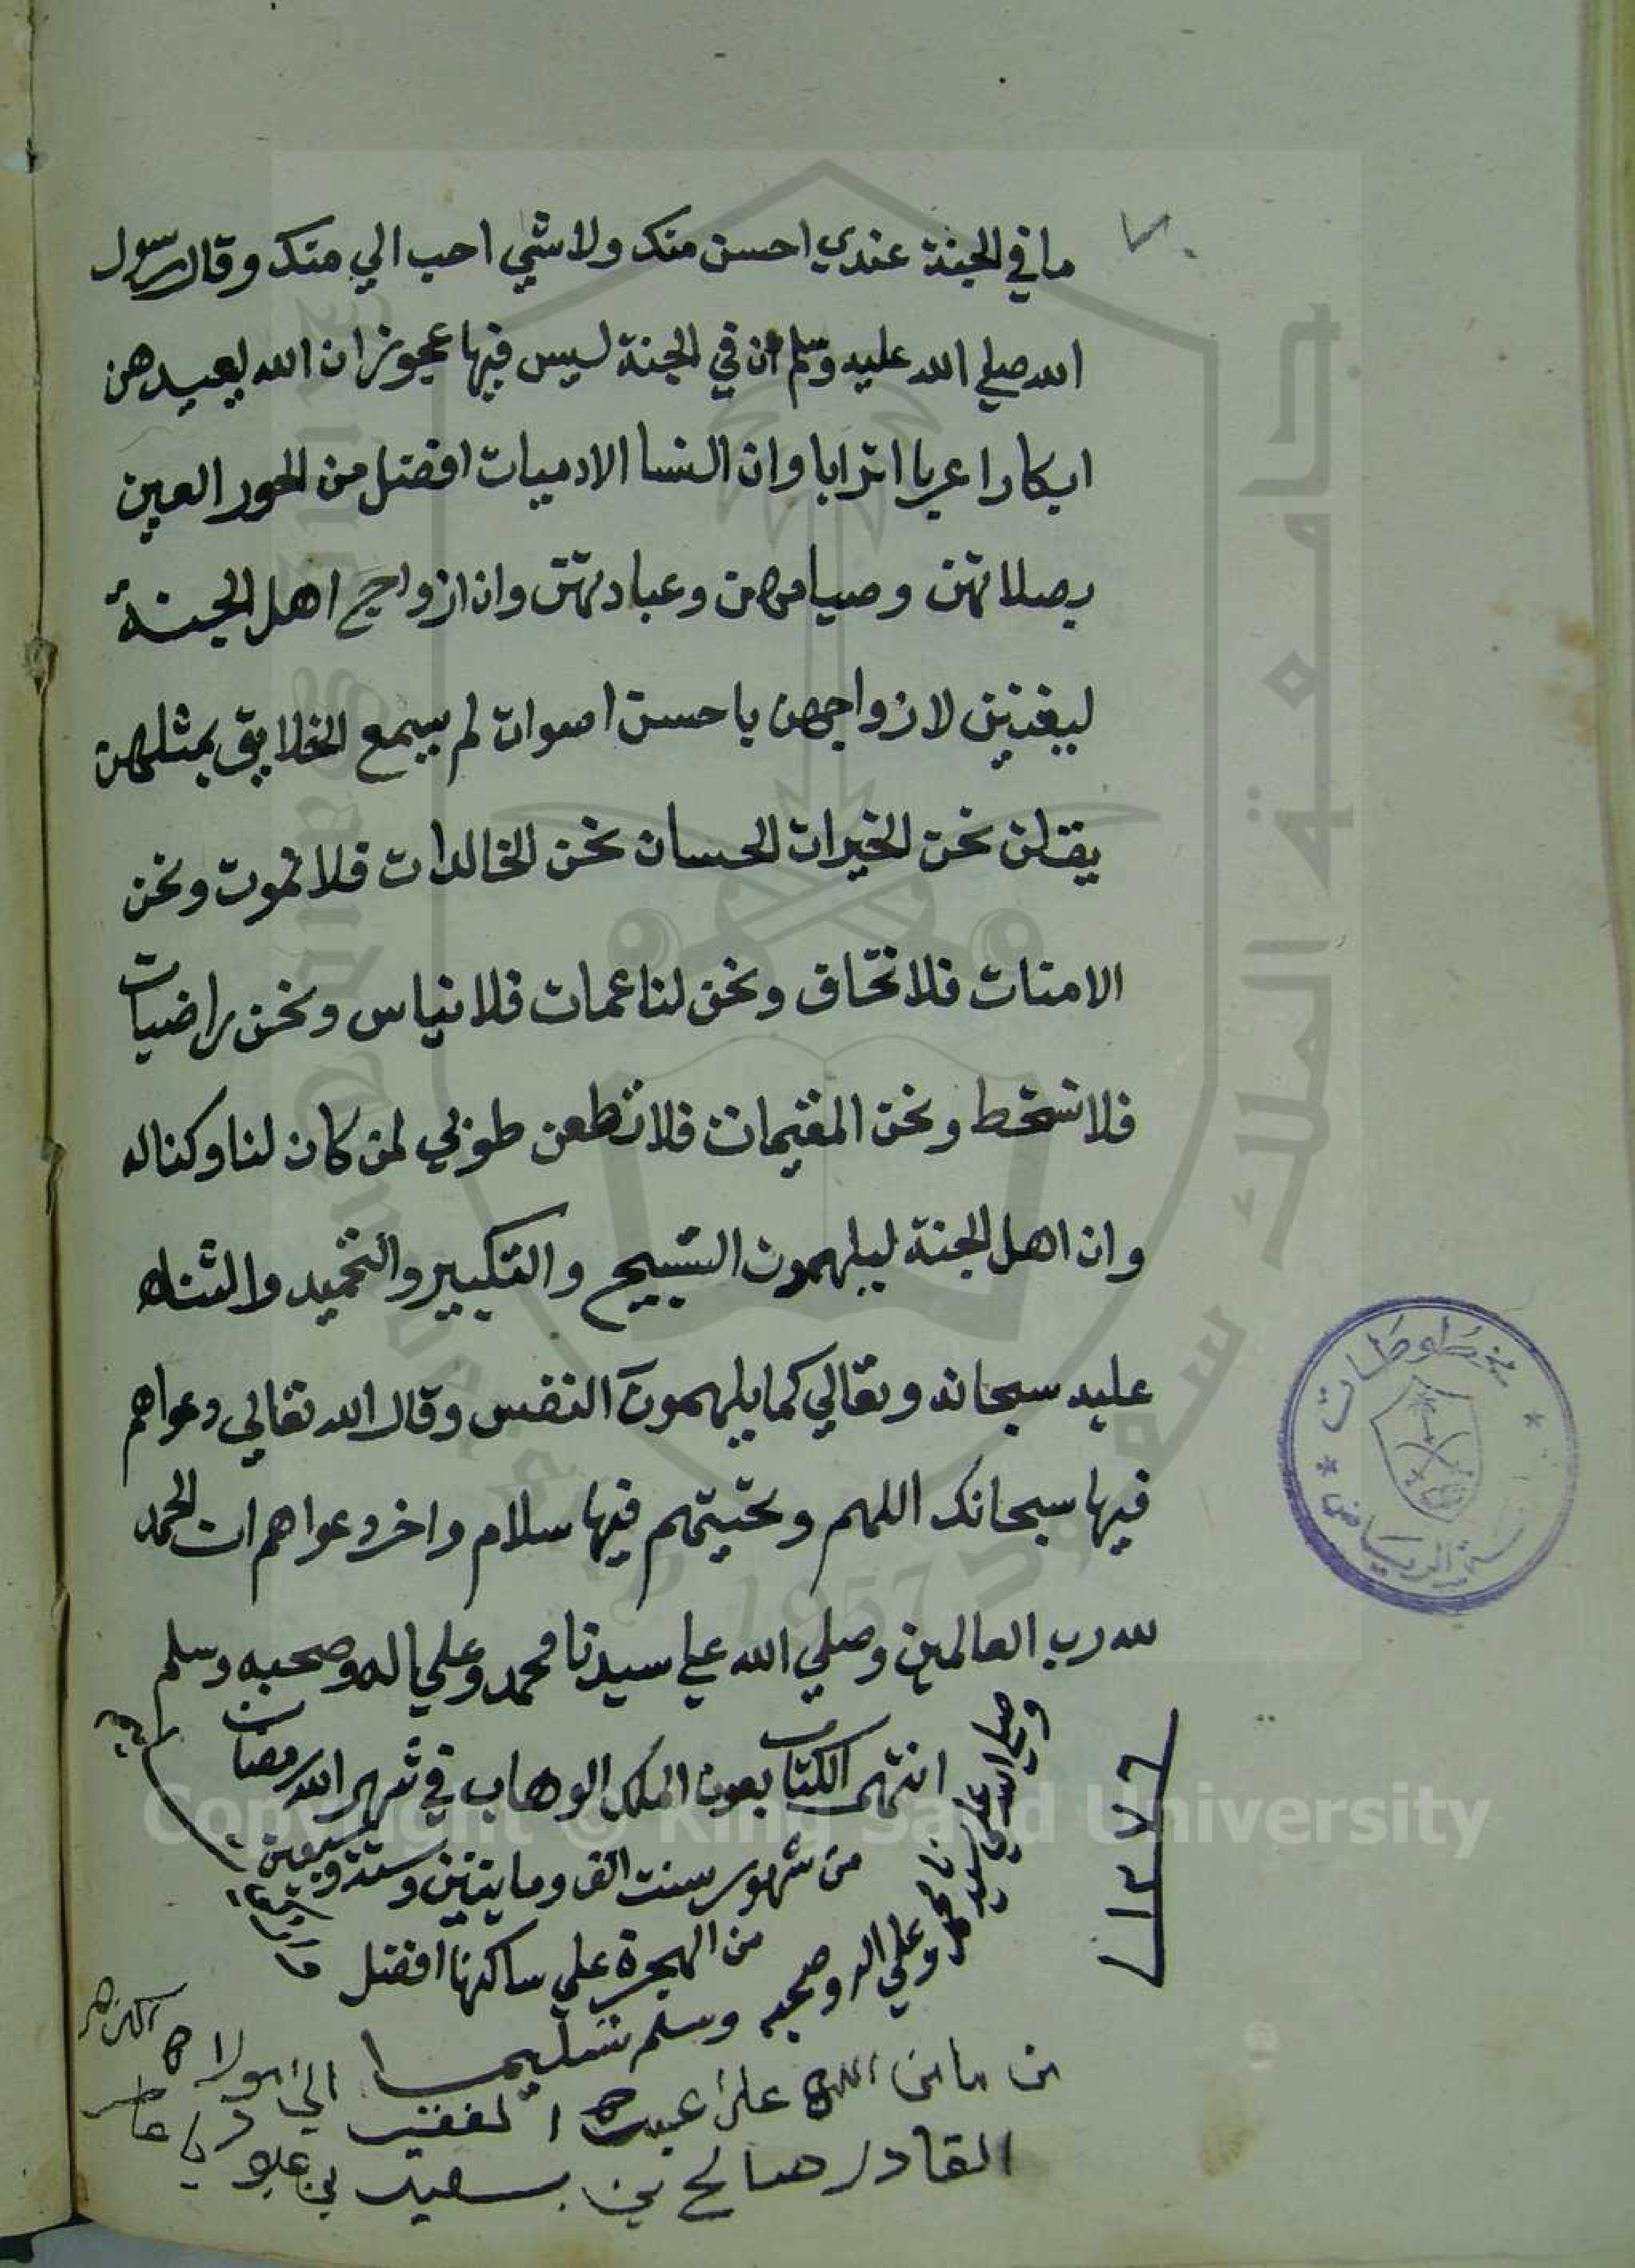 ما في الجنة عندي احسن منك ولا شي احب الي منك وقال رسول
الله صلي الله عليه وسلم ان في الجنة ليس فيها عجوز ان الله يعيدهن
ابكارا عربا اترابا وان النسا الادميات افضل من الحور العين
بصلاتهن وصيامهن وعبادتهن وان ازواج اهل الجنة
ليغنين لازواجهن باحسن اصوات لم يسمع الخلايق بمثلهن
يقلن نحن الخيرات الحسان نحن الخالدات فلا نموت ونحن
الامنات فلا نخاف ونحن لناعمات فلا نياس ونحن راضيات
فلا نسخط ونحن المقيمات فلا نظعن طوبي لمن كان لنا وكنا له
وان اهل الجنة ليلهمون التسبيح والتكبير والتحميد والثناء
عليه سبحانه وتعالي كما يلهمون النفس وقال الله تعالي دعواهم
فيها سبحانك اللهم وتحيتهم فيها سلام واخر دعواهم ان الحمد
لله رب العالمين وصلي الله علي سيدنا محمد وعلي اله وصحبه وسلم
انتهى الكتاب بعون الملك الوهاب في شهر الله رمضان
من شهور سنت الف ومايتين وستة وسبعين
من الهجرة علي ساكنها افضل
وصلى الله علي سيدنا محمد وعلي اله وصحبه وسلم تسليما
١٢٧٦
من ما من الله على عبده الفقير الى مولاه
القادر صالح بن سعيد بن
مخطوطات
الرياض
جامعة الملك سعود
King Saud University
1957
Copyright © King Saud University